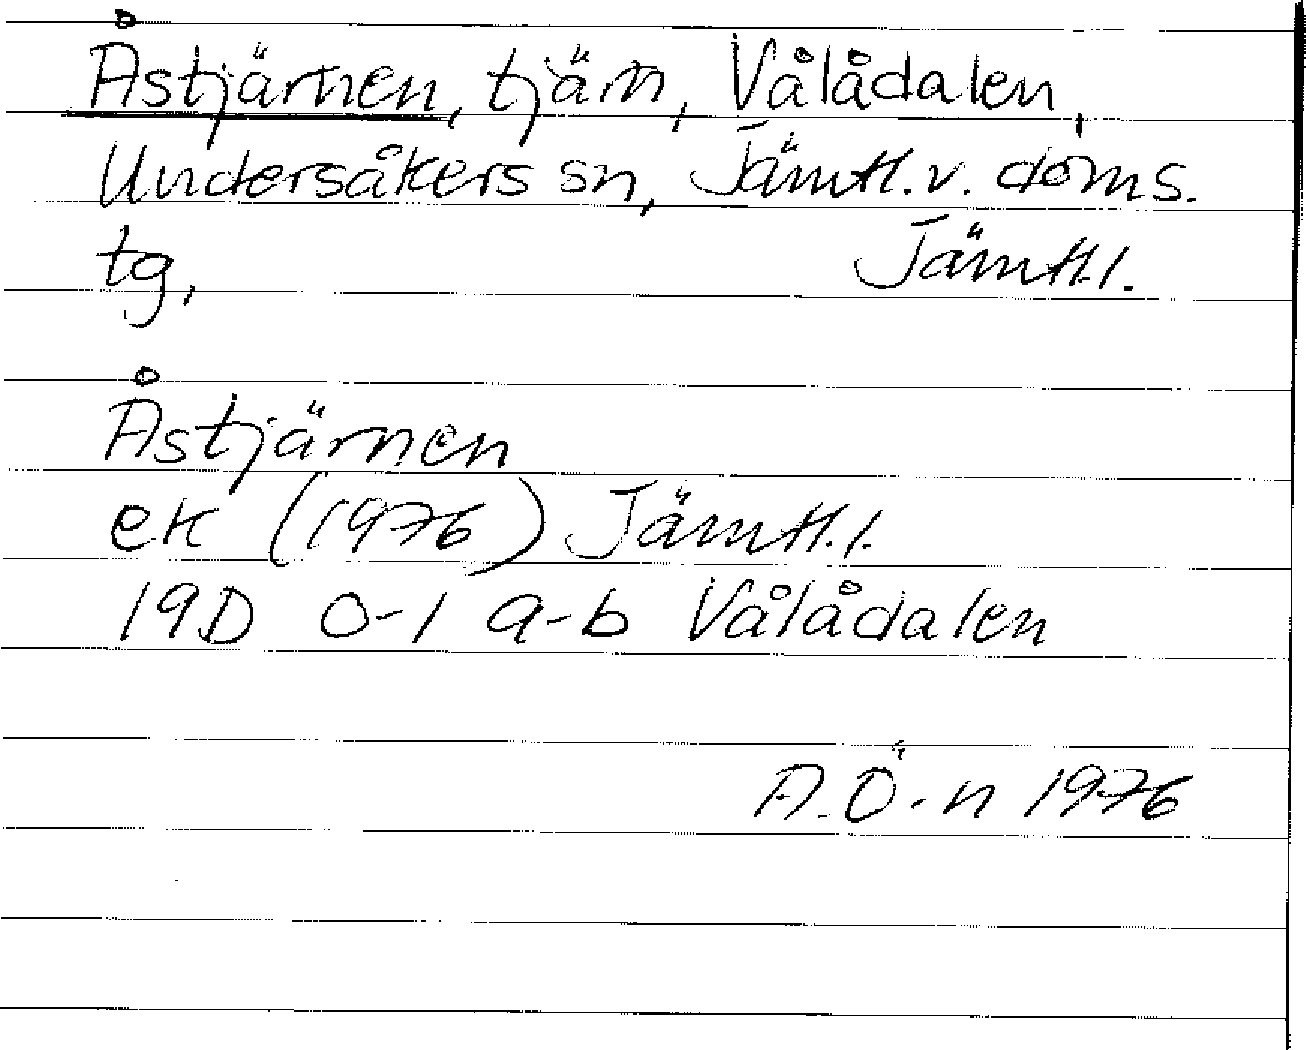 Åstjärnen, tjärn, Vålådalen,
Undersåkers sn, Jämtl. v. doms.
tg, Jämtl. l.
Åstjärnen
ek (1976) Jämtl. l.
19D 0-1 a-b Vålådalen
A. Ö-n 1976